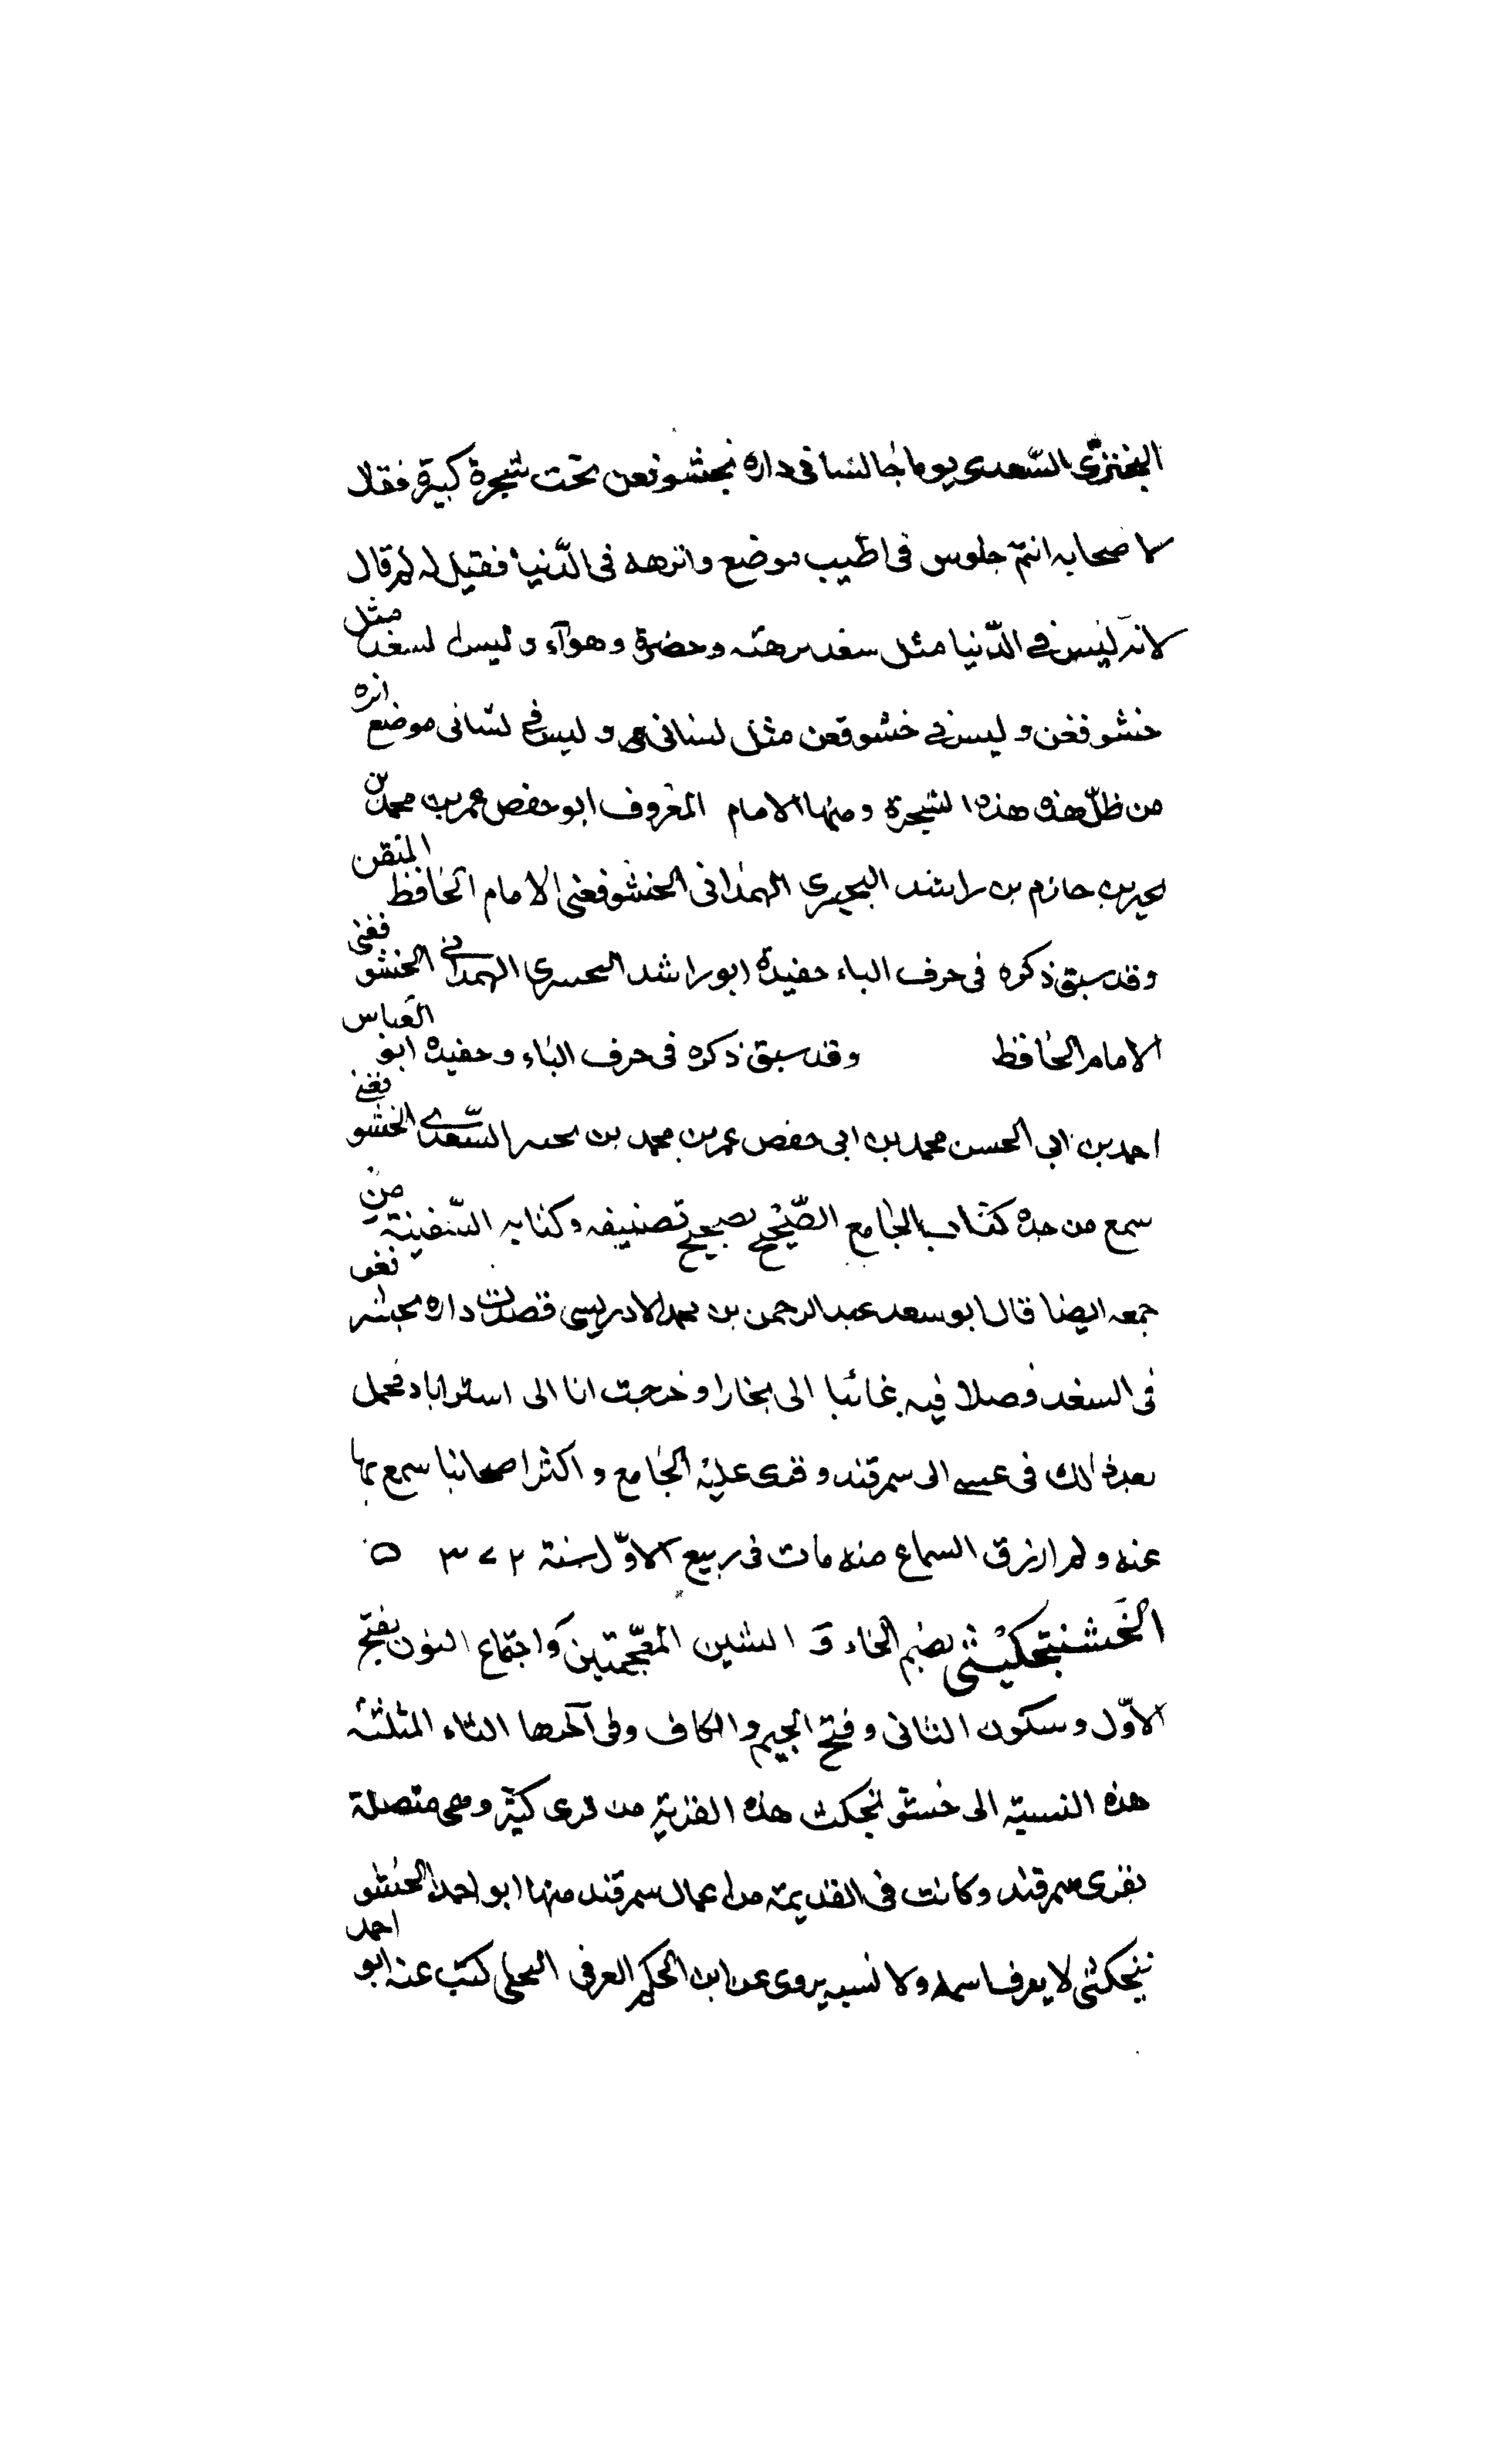 البحترى السّعدى يوما جالسا فى داره بخشوفغن تحت شجرة كبيرة فقال
لاصحابه انتم جلوس فى اطيب موضع وانزهه فى الدّنيا فقيل له لم قال
لانه ليس فى الدّنيا مثل سغد نزهته وخضرة وهوآء وليس لسغد مثل
خشوفغن و ليس فى خشوفغن مثل بستانى و ليس فى بستانى موضع انزه
من ظلّ هذه هذه الشجرة ومنها الامام المعروف ابو حفص عمر بن محمد بن
بحير بن حازم بن راشد البحيرى الهمذانى الخشوفغنى الامام الحافظ المتقن
وقد سبق ذكره فى حرف الباء حفيده ابو راشد البحيرى الهمدانى الخشوفغنى
الامام الحافظ وقد سبق ذكره فى حرف الباء وحفيده ابو العباس
احمد بن ابى الحسن محمد بن ابى حفص عمر بن محمد بن بحير السّغدى الخشوفغنى
سمع من جده كتاب الجامع الصّحيح تصنيفه وكتابه السّفينة من
جمعه ايضا قال ابو سعد عبد الرحمن بن محمد الادريسى قصدت داره بخشوفغن
فى السغد فصلا فيه غائبا الى بخارا وخرجت انا الى استراباد فحمل
بعد ذالك الى سمرقند وقرى عليه الجامع و اكثر اصحابنا سمع بها
عنه ولم ارزق السماع منه مات فى ربيع الاوّل سنة ٣٧٢ ه
الخُشنَنجكَثى بضم الخاء و الشين المعجمتين واجتماع النون بفتح
الاوّل وسكون الثانى وفتح الجيم والكاف وفى آخرها الثاء المثلثة
هذه النسبة الى خشوننجكث هذه القرية من قرى كثيرة وهى متصلة
بقرى سمرقند وكانت فى القديمة من اعمال سمرقند منها ابو احمد الخشو
ننجكثى لا يعرف اسمه ولا نسبه يروى عن ابن الحكم العرفى البجلى كتب عنه ابو احمد